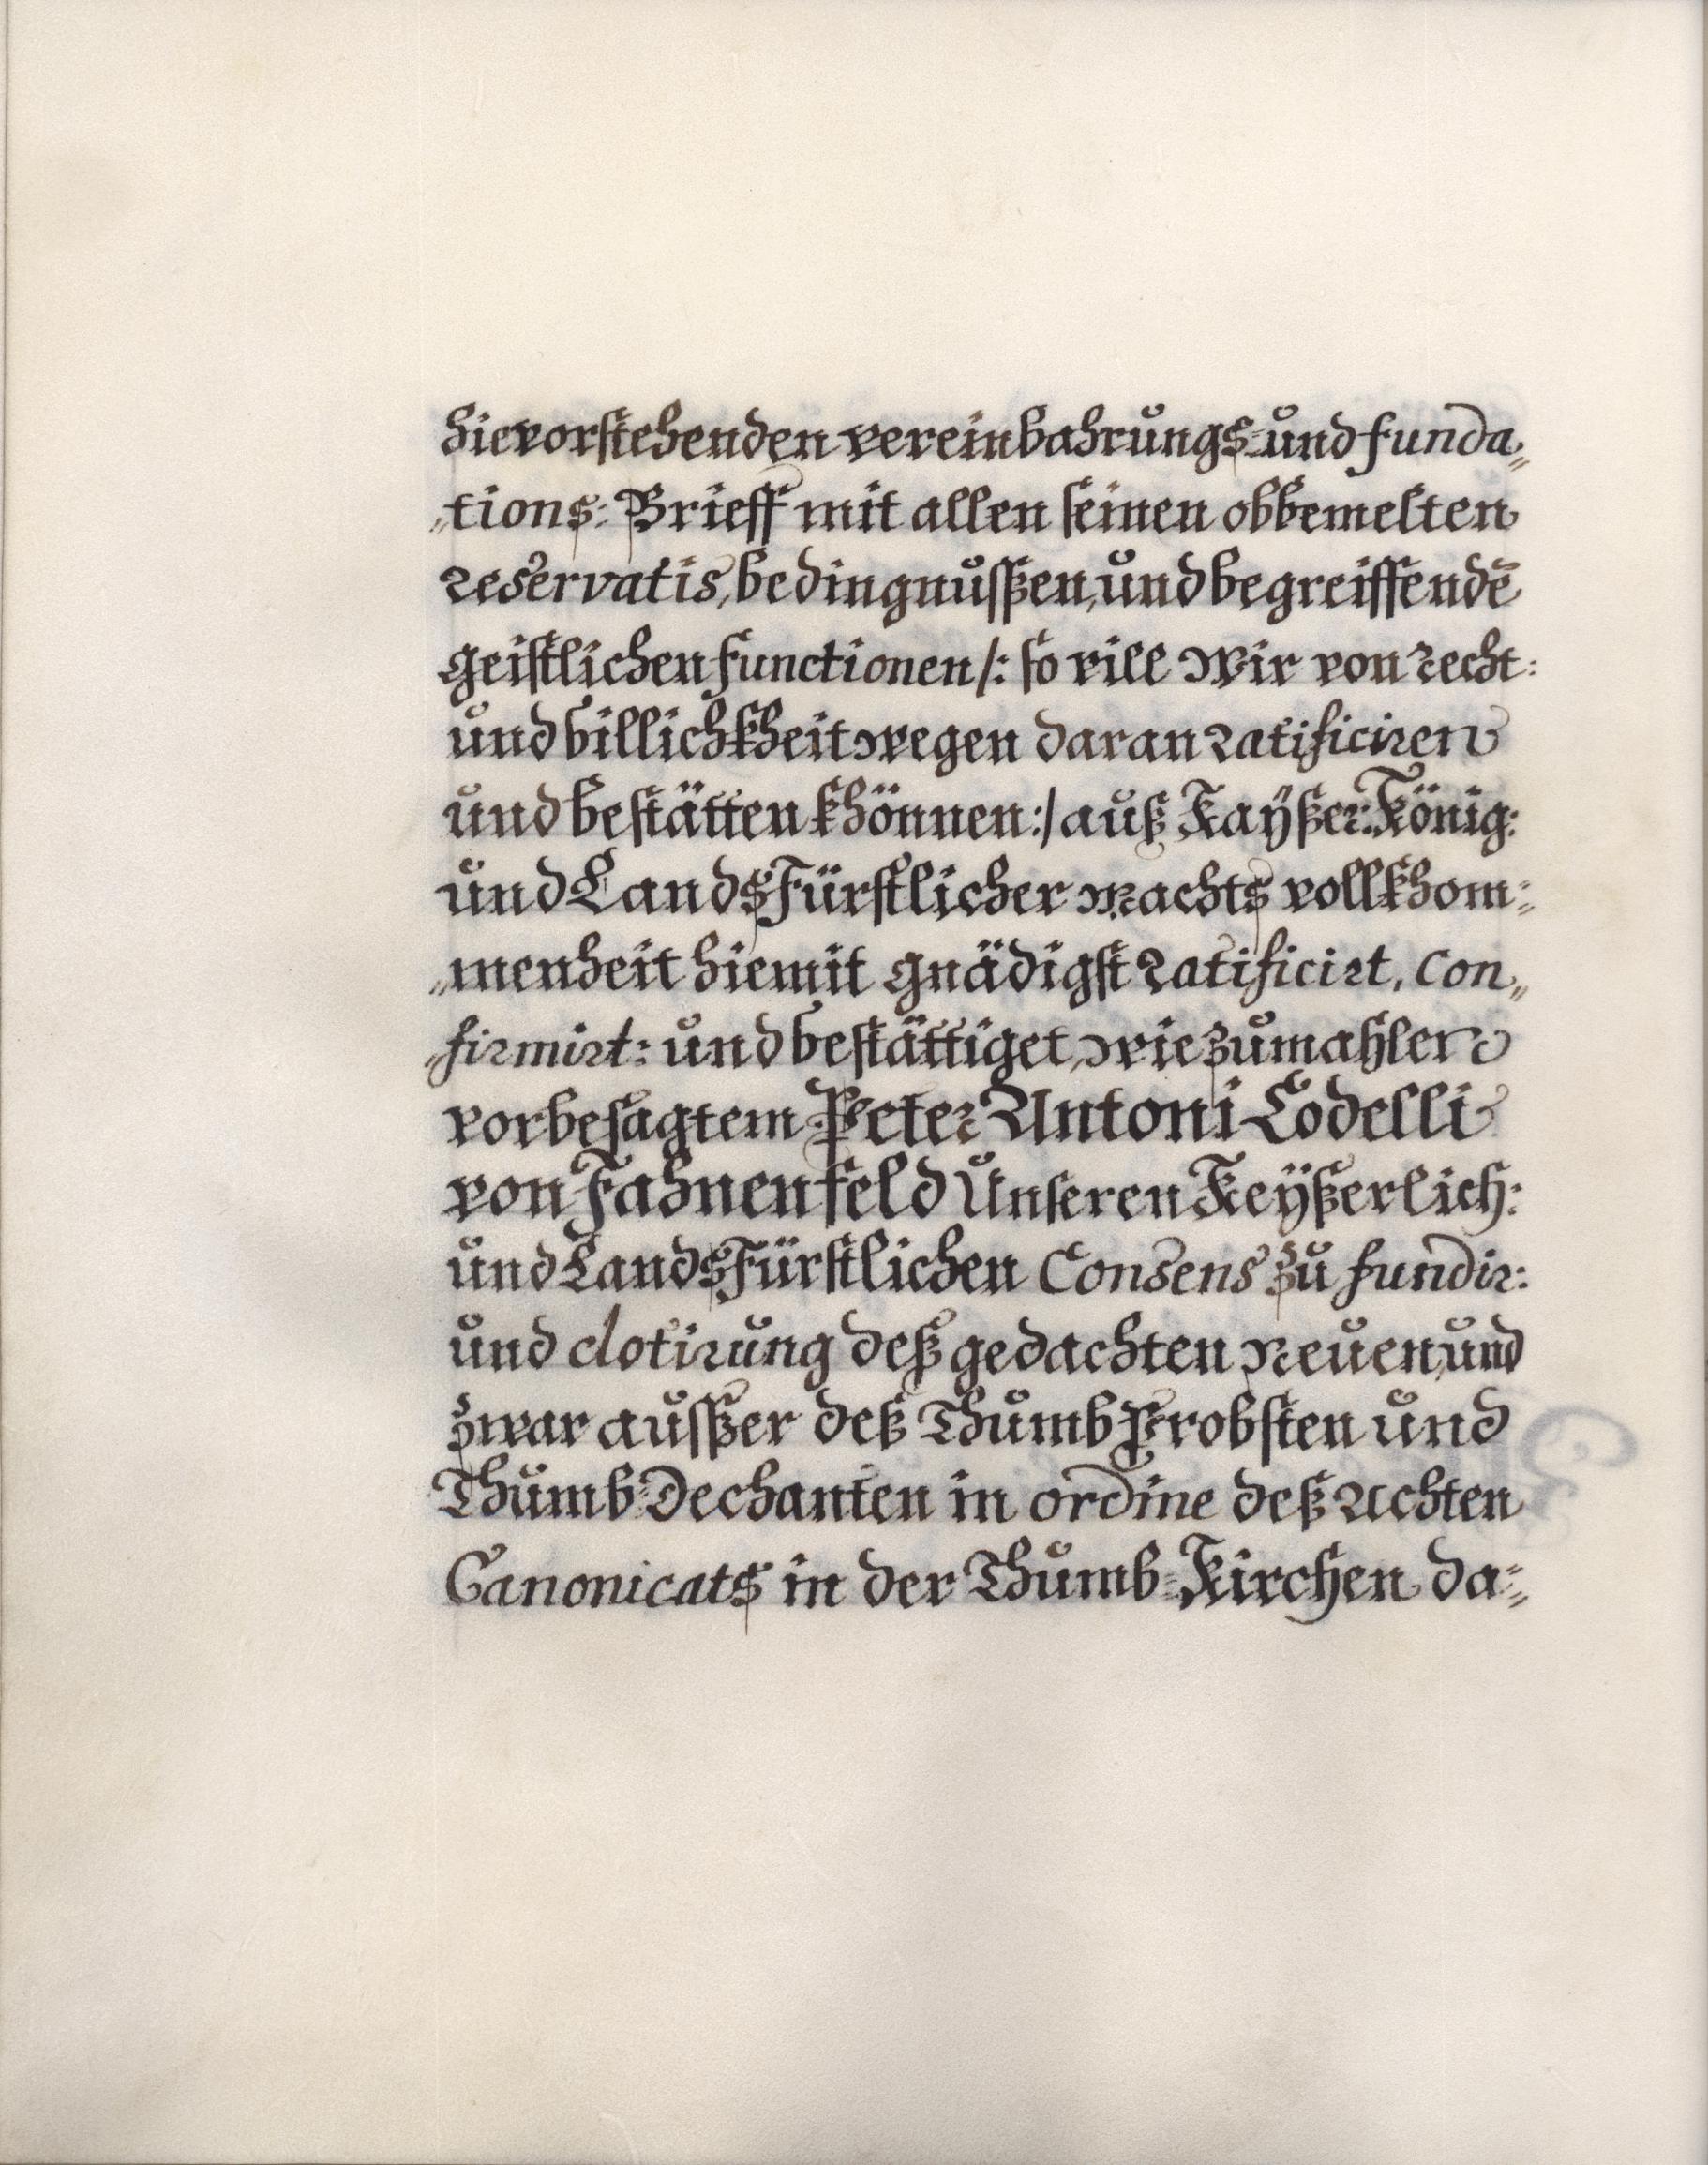 hievorstehenden vereinbahrungs= und funda„
„tions: Brieff mit allen seinen obbemelten
reservatis, bedingnussßen, und begreiffendē
geistlichen functionen /: so vill wir von recht:
und billichkheit wegen daran ratificiren
und bestätten khönnen :/ auß Kaÿßer: König:
und LandsFürstlicher Machts vollkhom=
„menheit hiemit gnädigst ratificirt, Con„
„firmirt: und bestättiget, wie zumahlen
vorbesagtem Peter Antoni Codelli
von Fahnenfeld Unseren Keÿßerlich:
und LandsFürstlichen Consens zu fundir:
und dotirung deß gedachten Neuen, und
zwar aussßer deß Thumb Probsten und
Thumb=Dechanten in ordine deß Achten
Canonicats in der Thumb=Kirchen da=